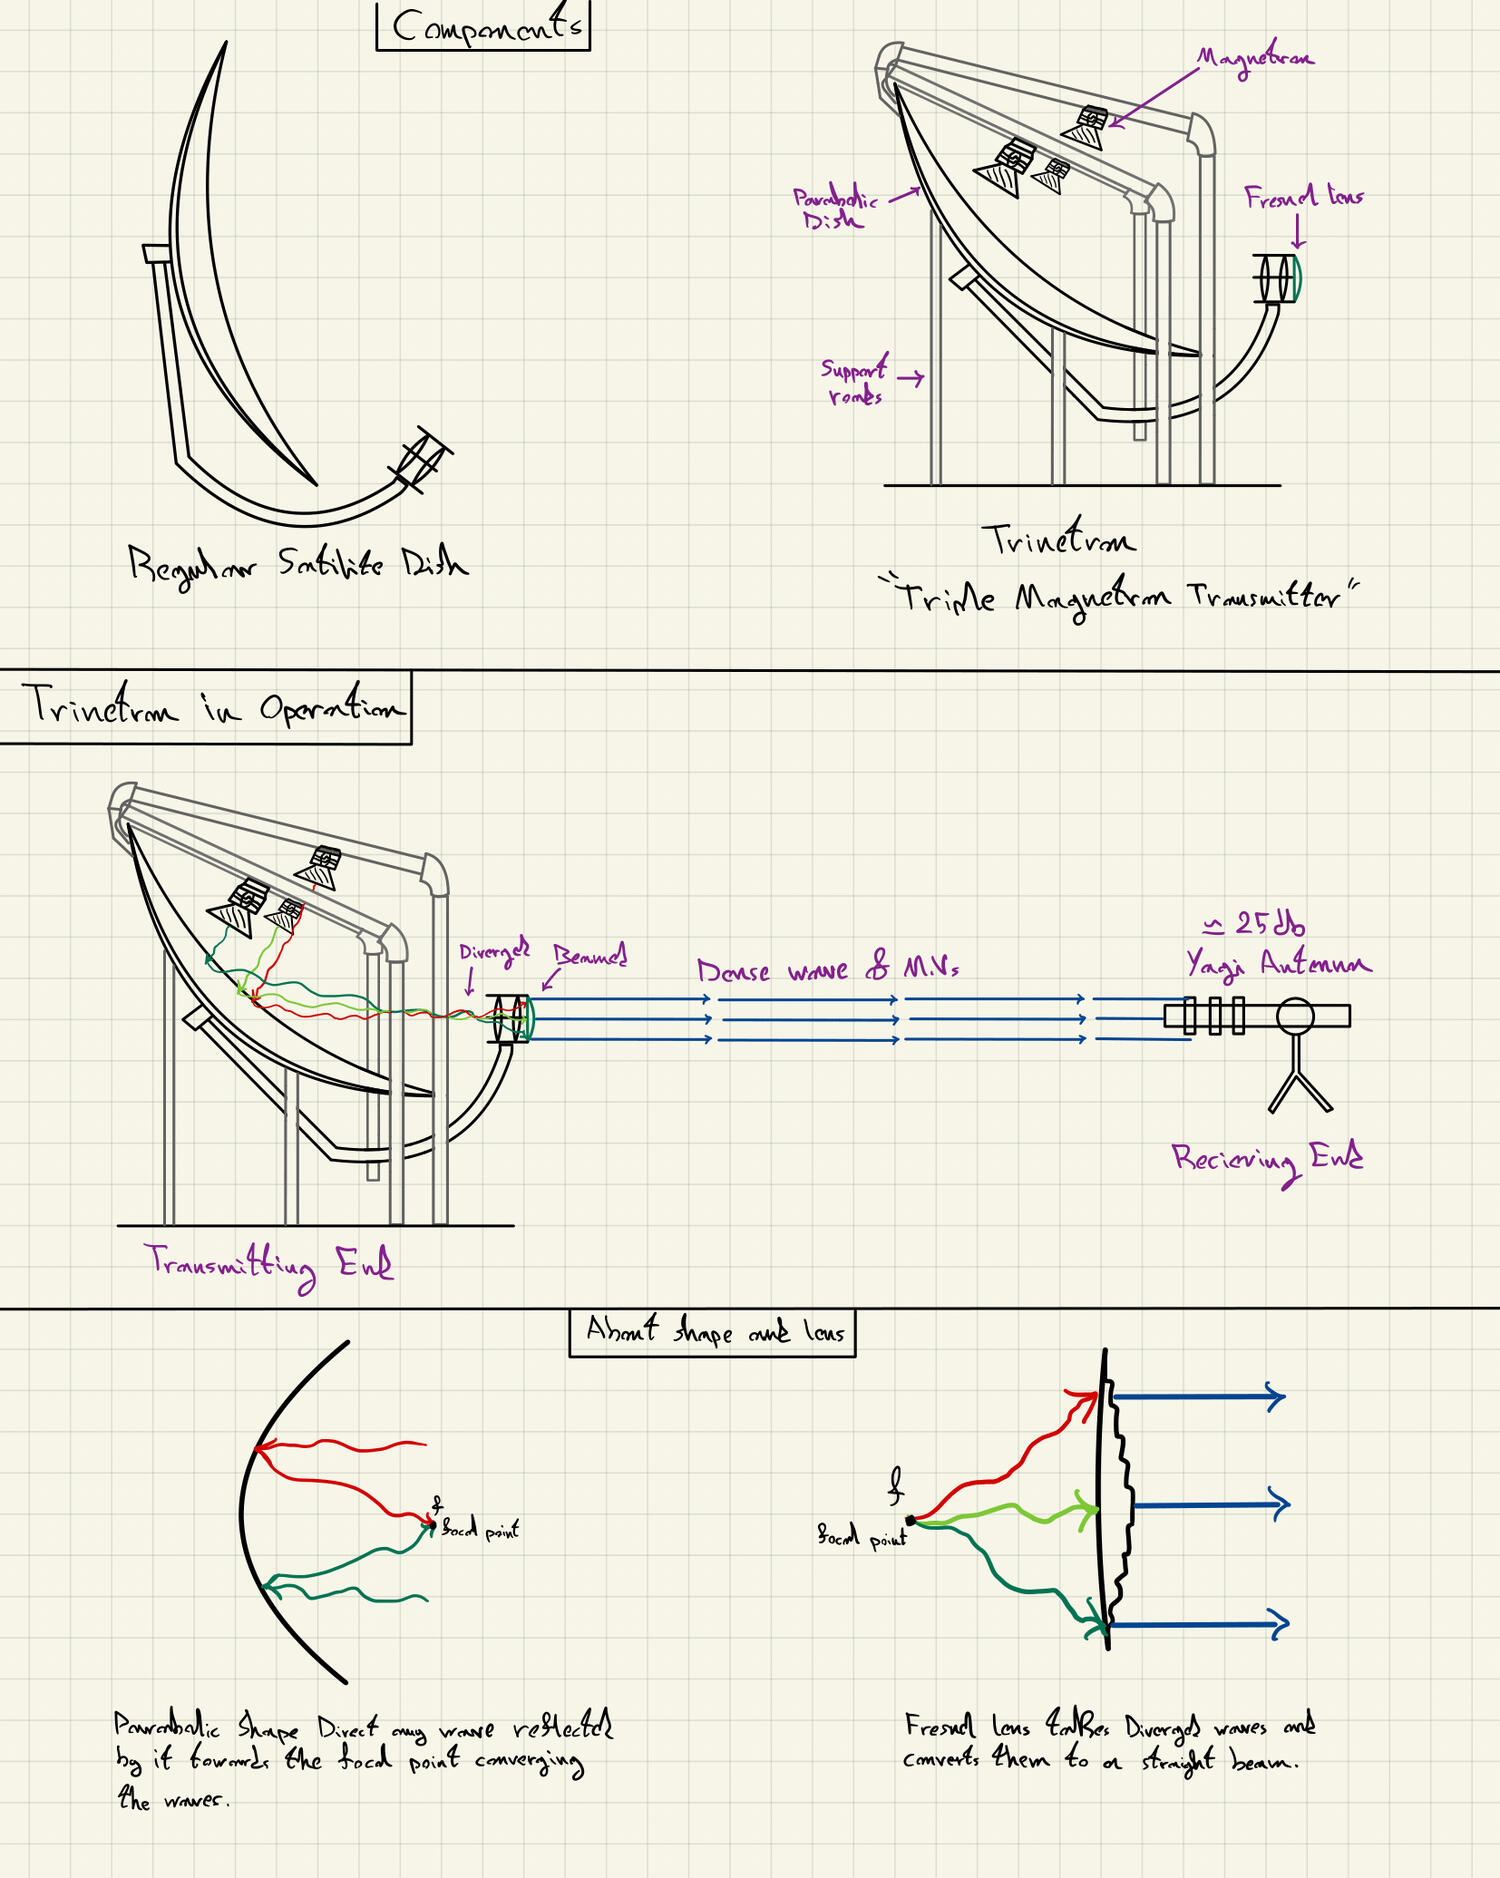 Components
Magnetron
Parabolic
Dish
Fresnel lens
Support
Regular Satilite Dish
Trinetron
"Triple Magnetron Transmitter"
Trinetron in Operation
Diverged
Beamed
Dense wave of M.Vs
≃ 25db
Yagi Antenna
Recieving End
Transmitting End
About shape and lens
f
focal point
f
focal point
Parabolic Shape Direct any wave reflected
by it towards the focal point converging
the waves.
Fresnel lens takes Diverged waves and
converts them to a straight beam.